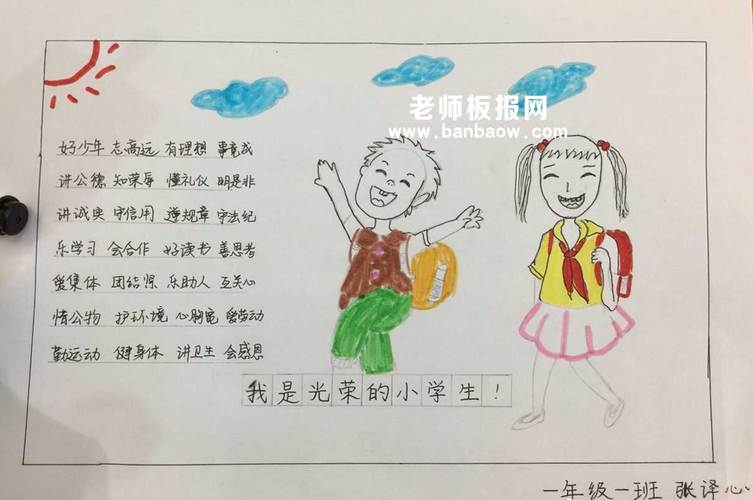 老师板报网
www.banbaow.com
好少年 志高远 有理想 事竟成
讲公德 知荣辱 懂礼仪 明是非
讲诚实 守信用 遵规章 守法纪
乐学习 会合作 好读书 善思考
爱集体 团结 乐助人 互关心
惜公物 护环境 心胸宽 爱劳动
勤运动 健身体 讲卫生 会感恩
我是光荣的小学生！
一年级一班 张译心